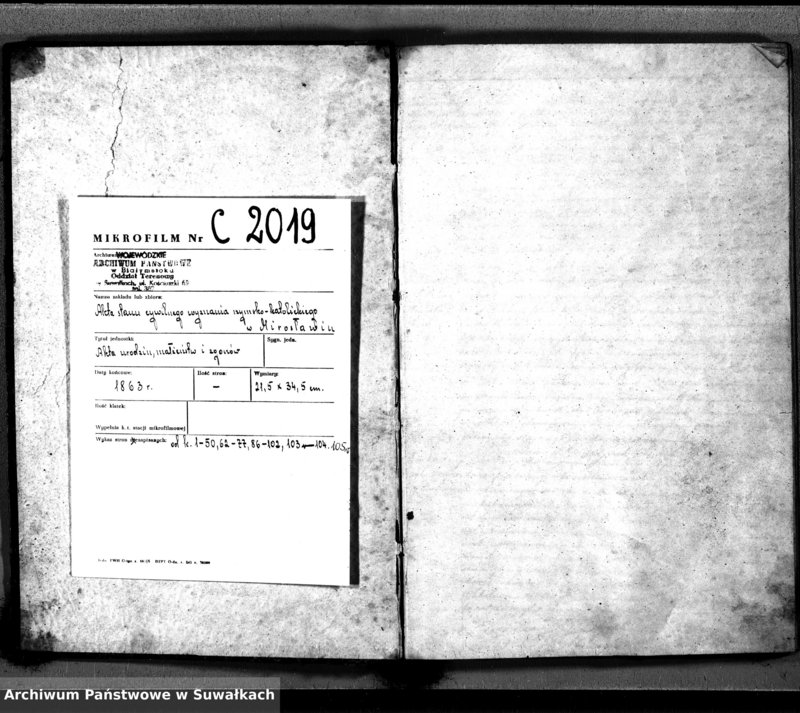 MIKROFILM Nr C 2019
Archiwum WOJEWÓDZKIE
ARCHIWUM PAŃSTWOWE
w Białymstoku
Oddział Terenowy
w Suwałkach, pl. Kościuszki 69
Nazwa zakładu lub zbioru:
Akta stanu cywilnego wyznania rzymsko-katolickiego
w Mirosławiu
Tytuł jednostki: Sygn. jedn.
Akta urodzin, małżeństw i zgonów
Daty końcowe: Ilość stron: Wymiary:
1863 r. — 21,5 x 34,5 cm.
Ilość klatek:
Wypełnia k. t. stacji mikrofilmowej
Wykaz stron zapisanych: od k. 1-50, 62-77, 86-102, 103-104. 105
Archiwum Państwowe w Suwałkach